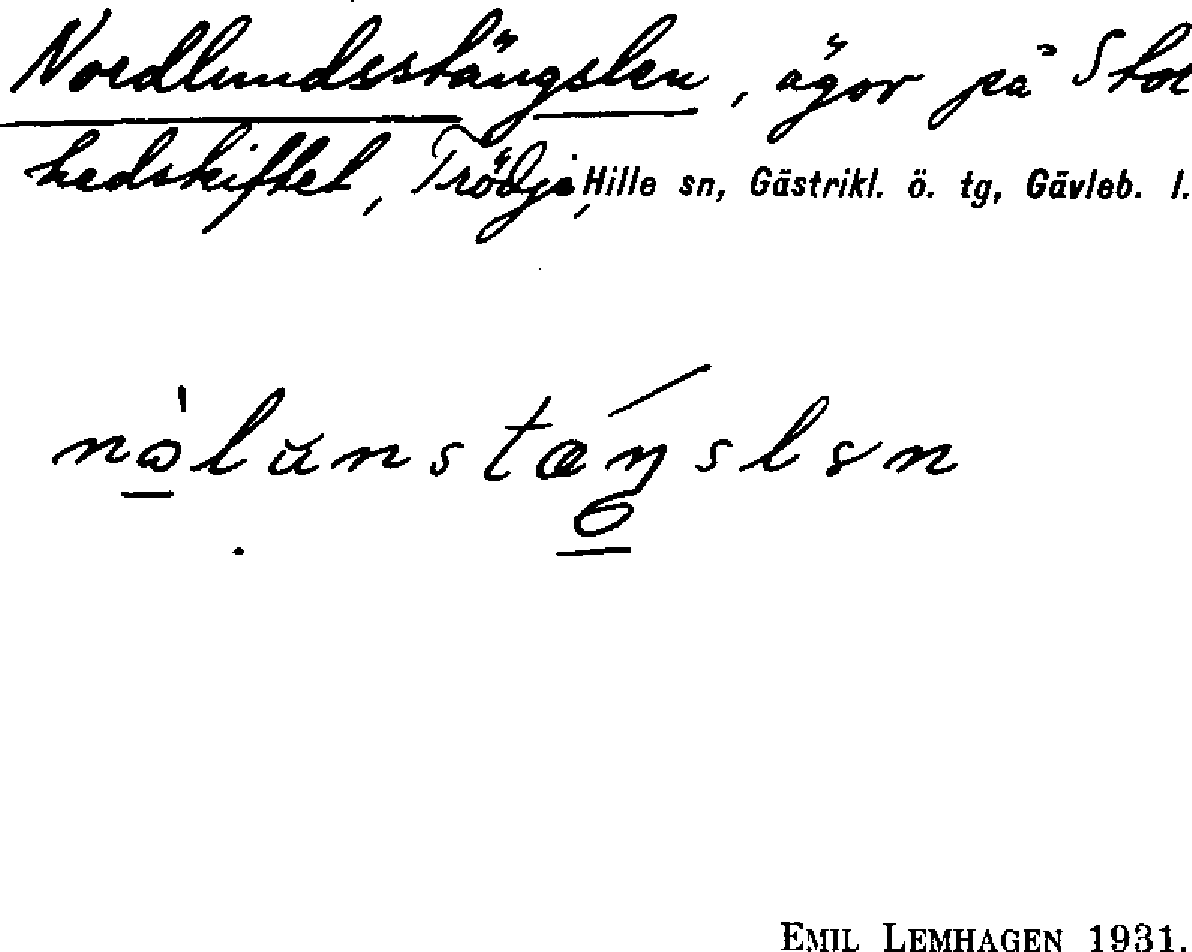 Nordlundsstängslen, ägor på Stor
hedskiftet, Trödje, Hille sn, Gästrikl. ö. tg, Gävleb. l.
EMIL LEMHAGEN 1931.